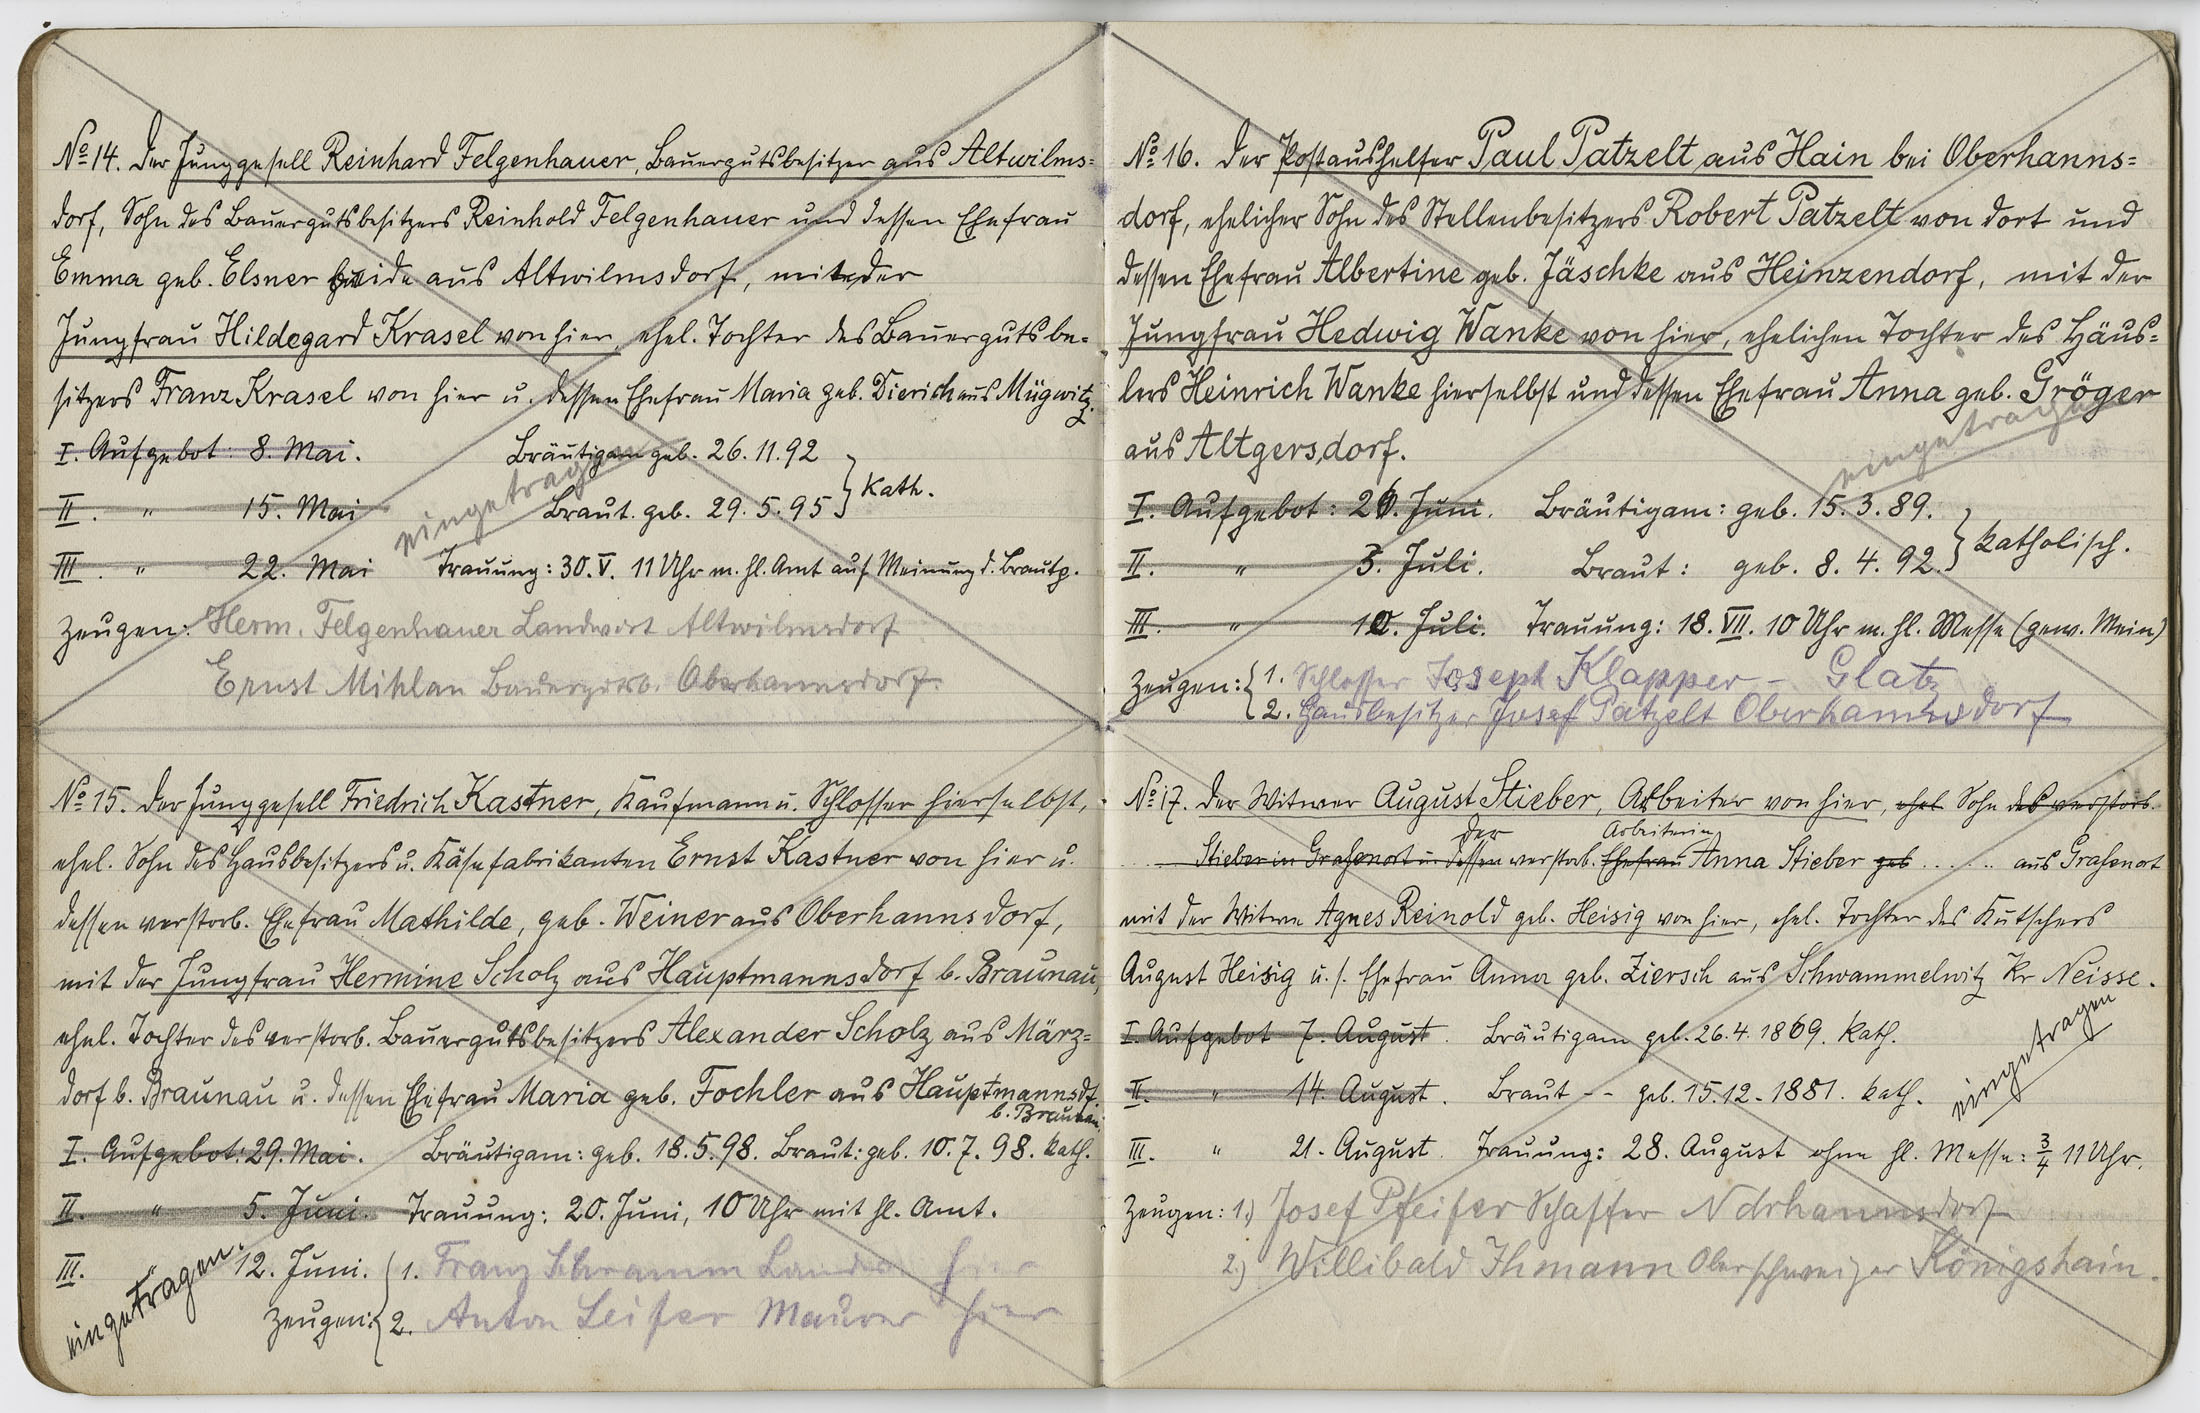 No 14. Der Junggesell Reinhard Felgenhauer, Bauergutsbesitzer aus Altwilms=
dorf, Sohn des Bauergutsbesitzers Reinhold Felgenhauer und dessen Ehefrau
Emma geb. Elsner beide aus Altwilmsdorf, mit der
Jungfrau Hildegard Krasel von hier, ehel. Tochter des Bauergutsbe-
sitzers Franz Krasel von hier u. dessen Ehefrau Maria geb. Dierich aus Mügwitz.
I. Aufgebot: 8. Mai. Bräutigam geb. 26.11.92
II. " 15. Mai Braut. geb. 29.5.95 } kath.
eingetragen
III. " 22. Mai Trauung: 30.V. 11 Uhr m. hl. Amt auf Meinung d. Brautp.
Zeugen: Herm. Felgenhauer Landwirt Altwilmsdorf
Ernst Mihlan Oberhannsdorf.
No 15. Der Junggesell Friedrich Kastner, Kaufmann u. Schlosser hierselbst,
ehel. Sohn des Hausbesitzers u. Käsefabrikanten Ernst Kastner von hier u.
dessen verstorb. Ehefrau Mathilde, geb. Weiner aus Oberhannsdorf,
mit der Jungfrau Hermine Scholz aus Hauptmannsdorf b. Braunau,
ehel. Tochter des verstorb. Bauergutsbesitzers Alexander Scholz aus März=
dorf b. Braunau u. dessen Ehefrau Maria geb. Fochler aus Hauptmannsdf.
b. Braunau.
I. Aufgebot: 29. Mai. Bräutigam: geb. 18.5.98. Braut: geb. 10.7.98. kath.
II. " 5. Juni. Trauung: 20. Juni, 10 Uhr mit hl. Amt.
III. " 12. Juni. { 1. Franz Schramm hier
eingetragen.
Zeugen: { 2. Anton Leifer Maurer hier
No 16. Der Postaushelfer Paul Patzelt aus Hain bei Oberhanns=
dorf, ehelicher Sohn des Stellenbesitzers Robert Patzelt von dort und
dessen Ehefrau Albertine geb. Jäschke aus Heinzendorf, mit der
Jungfrau Hedwig Wanke von hier, ehelichen Tochter des Häus=
lers Heinrich Wanke hierselbst und dessen Ehefrau Anna geb. Gröger
aus Altgersdorf.
eingetragen
I. Aufgebot: 26. Juni. Bräutigam: geb. 15.3.89.
II. " 3. Juli. Braut: geb. 8.4.92. } katholisch.
III. " 10. Juli. Trauung: 18.VII. 10 Uhr m. hl. Messe (gew. Mein)
Zeugen: { 1. Schlosser Joseph Klapper - Glatz
2. Hausbesitzer Josef Patzelt Oberhannsdorf
No 17. Der Witwer August Stieber, Arbeiter von hier, ehel. Sohn des verstorb.
der Arbeiterin
Stieber in Grafenort u. dessen verstorb. Ehefrau Anna Stieber geb ..... aus Grafenort
mit der Witwe Agnes Reinold geb. Heisig von hier, ehel. Tochter des Kutschers
August Heisig u. s. Ehefrau Anna geb. Ziersch aus Schwammelwitz Kr Neisse.
I. Aufgebot 7. August. Bräutigam geb. 26.4.1869. kath.
II. " 14. August. Braut -- geb. 15.12.1881. kath.
eingetragen
III. " 21. August. Trauung: 28. August ohne hl. Messe: 3/4 11 Uhr.
Zeugen: 1.) Josef Pfeifer Schaffer Ndrhannsdorf
2.) Willibald Ihmann Oberschweizer Königshain.